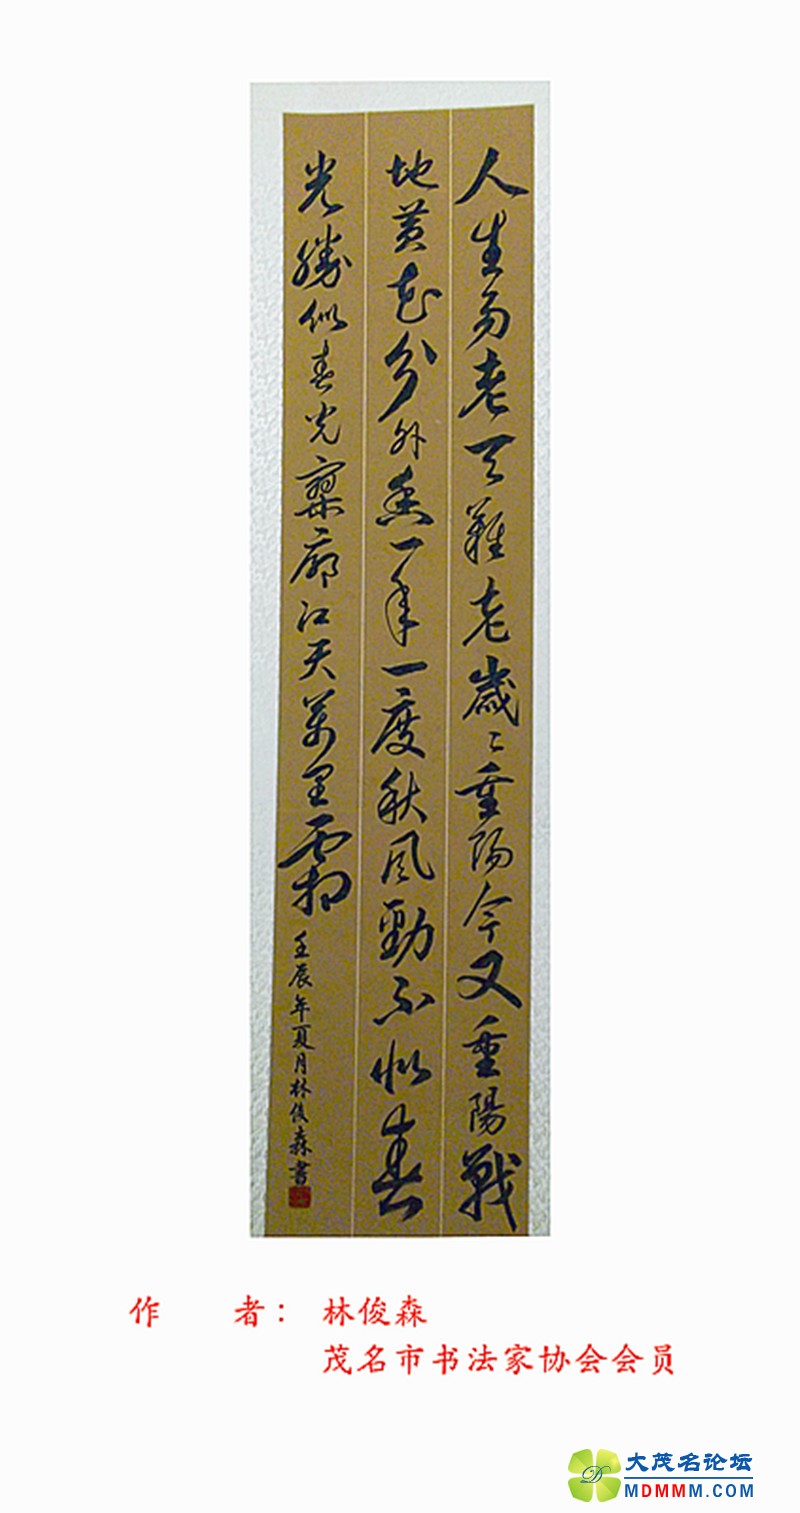 人生易老天難老歲〻重陽今又重陽戰
地黄花分外香一年一度秋風勁不似春
光勝似春光寥廓江天萬里霜 壬辰年夏月林俊森書
作 者： 林俊森
茂名市书法家协会会员
大茂名论坛
MDMMM.COM